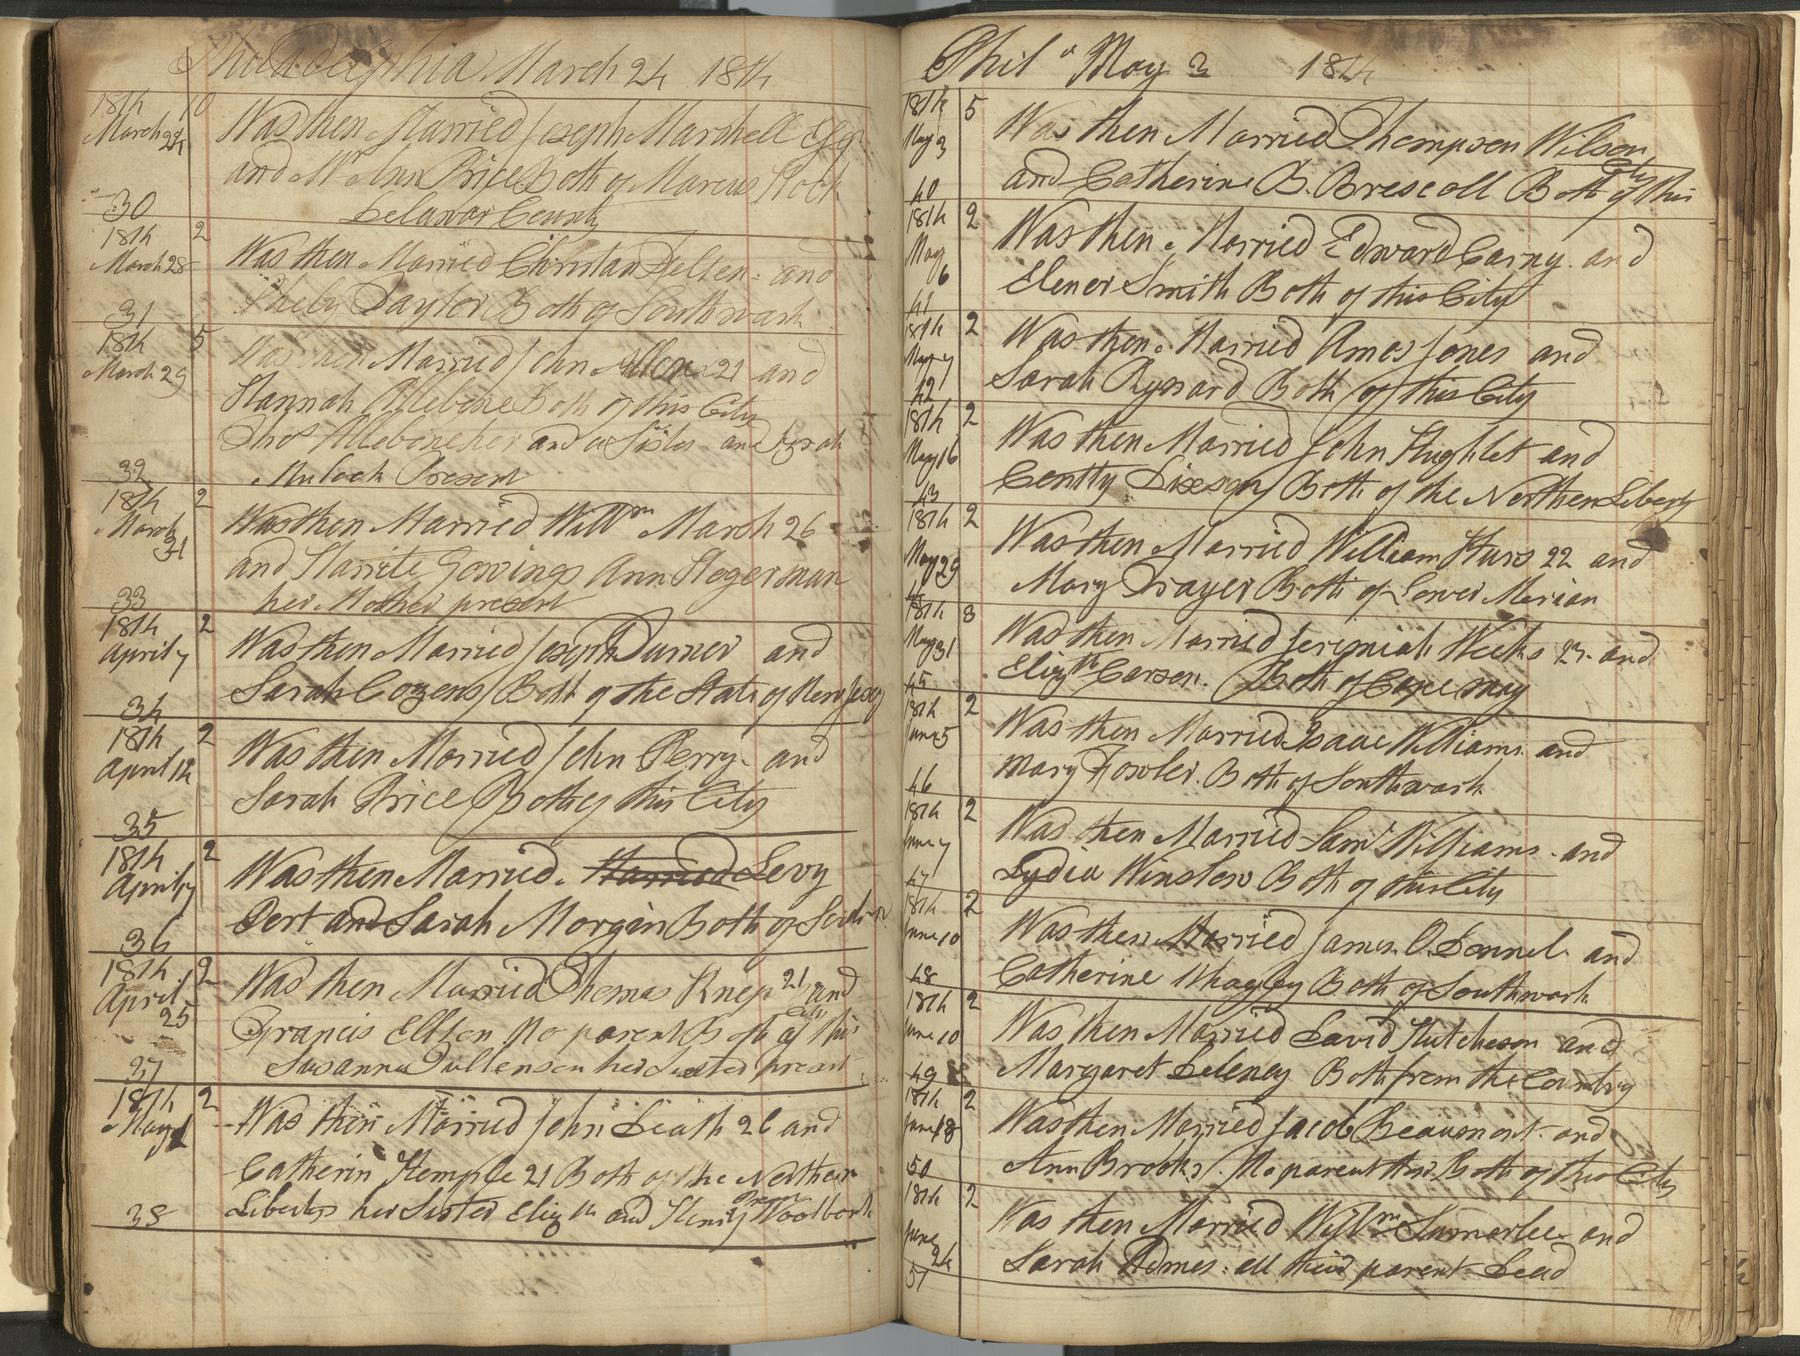 Philadelphia March 24 1814
1814 10
March 24
Was then Married Joseph Marshell Esq
and Mrs Ann Price Both of Marcus Hook
Delawar County
30
1814 2
March 28
Was then Married Christan Felten and
Pheby Taylor Both of Southwark
31
1814 5
March 29
Was then Married John Allen 21 and
Hannah Both of this City
Thos her and a Sister and
Present
32
1814 2
March 31
Was then Married Willm March 26
and Harrite Gowings Ann Hegerman
her Mother present
33
1814 2
April 7
Was then Married Joseph Turner and
Sarah Cozens Both of the State of New Jersey
34
1814 2
April 12
Was then Married John Perry and
Sarah Price Both of this City
35
1814 2
April 17
Was then Married Married Levy
Pert and Sarah Morgin Both of
36
1814 2
April 25
Was then Married Thomas Knep 21 and
Francis Elften No parent Both of this City
Susanna Tullensen her present
37
1814 2
May 1
Was then Married John Leath 26 and
Catherin Hemple 21 Both of the Nerthern
Libertys her Sister Elizth and Henry Woolbark
38
Phila May 3 1814
1814 5
May 3
Was then Married Thompson Wilson
and Catherine B. Brescoll Both of this City
40
1814 2
May 6
Was then Married Edward Carny and
Elener Smith Both of this City
41
1814 2
May 7
Was then Married Amos Jones and
Sarah Rynard Both of this City
42
1814 2
May 16
Was then Married John Hughlet and
Centty Dixson Both of the Northen Liberty
43
1814 2
May 29
Was then Married William Hurs 22 and
Mary Trayer Both of Lower Merian
44
1814 8
May 31
Was then Married Jeremiah Weeks 23 and
Elizth Carson. Both of Cape May
45
1814 2
June 5
Was then Married Isaac Williams and
Mary Fowler. Both of Southwark
46
1814 2
June 7
Was then Married Saml Williams and
Lydia Winslow Both of this City
47
1814 2
June 10
Was then Married James O Donnel and
Catherine Both of Southwark
48
1814 2
June 10
Was then Married David Hutcheson and
Margaret Deleney Both from the Country
49
1814 2
June 18
Was then Married Jacob Beaumont and
Ann Brooks. No parent this Both of this City
50
1814 2
June 24
Was then Married Willm Sumerlee and
Sarah Ademes. all their parent Dead
51